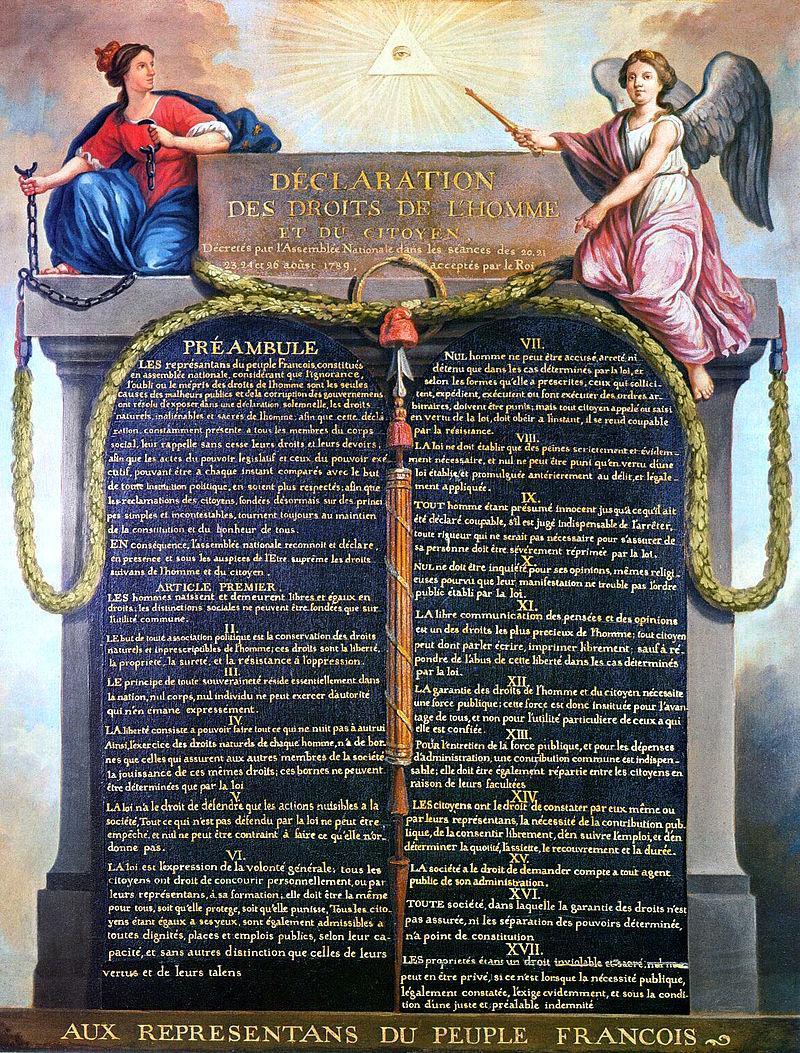 DÉCLARATION
DES DROITS DE L'HOMME
ET DU CITOYEN,
Décretés par l'Assemblée Nationale dans les séances des 20, 21
23, 24 et 26 aoûst 1789, acceptés par le Roi
PRÉAMBULE
LES représantans du peuple Francois, constitués
en assemblée nationale, considérant que l'ignorance,
l'oubli ou le mépris des droits de l'homme sont les seules
causes des malheurs publics et de la corruption des gouvernemens
ont résolu d'exposer dans une déclaration solemnelle, les droits
naturels, inaliénables et sacrés de l'homme; afin que cette décla-
ration, constamment présente a tous les membres du corps
social, leur rappelle sans cesse leurs droits et leurs devoirs;
afin que les actes du pouvoir législatif et ceux du pouvoir exé-
cutif, pouvant être a chaque instant comparés avec le but
de toute institution politique, en soient plus respectés; afin que
les reclamations des citoyens, fondées désormais sur des princi-
pes simples et incontestables, tournent toujours au maintien
de la constitution et du bonheur de tous.
EN conséquence, l'assemblée nationale reconnoit et déclare,
en presence et sous les auspices de l'Etre suprême les droits
suivans de l'homme et du citoyen.
ARTICLE PREMIER.
LES hommes naissent et demeurent libres et égaux en
droits; les distinctions sociales ne peuvent être fondées que sur
l'utilité commune.
II.
LE but de toute association politique est la conservation des droits
naturels et inprescriptibles de l'homme; ces droits sont la liberté,
la proprieté, la sureté, et la résistance à l'oppression.
III.
LE principe de toute souveraineté réside essentiellement dans
la nation, nul corps, nul individu ne peut exercer d'autorité
qui n'en émane expressement.
IV.
LA liberté consiste a pouvoir faire tout ce qui ne nuit pas à autrui
Ainsi, l'exercice des droits naturels de chaque homme, n'a de bor-
nes que celles qui assurent aux autres membres de la société
la jouissance de ces mêmes droits; ces bornes ne peuvent
être déterminées que par la loi
V.
LA loi n'a le droit de défendre que les actions nuisibles à la
société, Tout ce qui n'est pas défendu par la loi ne peut être
empêché, et nul ne peut être contraint à faire ce qu'elle n'or-
donne pas.
VI.
LA loi est l'expression de la volonté générale; tous les
citoyens ont droit de concourir personnellement, ou par
leurs représentans, à sa formation; elle doit être la même
pour tous, soit qu'elle protege, soit qu'elle punisse, Tous les cito-
yens étant égaux a ses yeux, sont également admissibles a
toutes dignités, places et emplois publics, selon leur ca-
pacité, et sans autres distinction que celles de leurs
vertus et de leurs talens
VII.
NUL homme ne peut être accusé, arreté, ni
détenu que dans les cas déterminés par la loi, et
selon les formes qu'elle a prescrites, ceux qui sollici-
tent, expédient, exécutent ou font exécuter des ordres ar-
bitraires, doivent être punis; mais tout citoyen appelé ou saisi
en vertu de la loi, doit obéir a l'instant, il se rend coupable
par la résistance.
VIII.
LA loi ne doit établir que des peines strictement et évidem-
ment nécessaire, et nul ne peut être puni qu'en vertu d'une
loi établie, et promulguée antérierement au délit, et légale-
ment appliquée.
IX.
TOUT homme étant présumé innocent jusqu'a ce qu'il ait
été déclaré coupable, s'il est jugé indispensable de l'arrêter,
toute rigueur qui ne serait pas nécessaire pour s'assurer de
sa personne doit être sévèrement réprimée par la loi.
X.
NUL ne doit être inquiété pour ses opinions, mêmes religi-
euses pourvu que leur manifestation ne trouble pas l'ordre
public établi par la loi.
XI.
LA libre communication des pensées et des opinions
est un des droits les plus precieux de l'homme; tout citoyen
peut dont parler ecrire, imprimer librement; sauf à ré-
pondre de l'abus de cette liberté dans les cas déterminés
par la loi.
XII.
LA garantie des droits de l'homme et du citoyen nécessite
une force publique; cette force est donc instituée pour l'avan-
tage de tous, et non pour l'utilité particuliere de ceux a qui
elle est confiée.
XIII.
POUR l'entretien de la force publique, et pour les dépenses
d'administration, une contribution commune est indispen-
sable; elle doit être également répartie entre les citoyens en
raison de leurs facultées
XIV.
LES citoyens ont le droit de constater par eux même ou
par leurs représentans, la nécessité de la contribution pub-
lique, de la consentir librement, d'en suivre l'emploi, et d'en
déterminer la quotité, l'assiette, le recouvrement et la durée.
XV.
LA société a le droit de demander compte a tout agent
public de son administration.
XVI.
TOUTE société, dans laquelle la garantie des droits n'est
pas assurée, ni les séparation des pouvoirs déterminée,
n'a point de constitution
XVII.
LES proprietés étant un droit inviolable et sacré, nul ne
peut en être privé; si ce n'est lorsque la nécessité publique,
légalement constatée, l'exige evidemment, et sous la condi-
tion d'une juste et préalable indemnité
AUX REPRESENTANS DU PEUPLE FRANCOIS